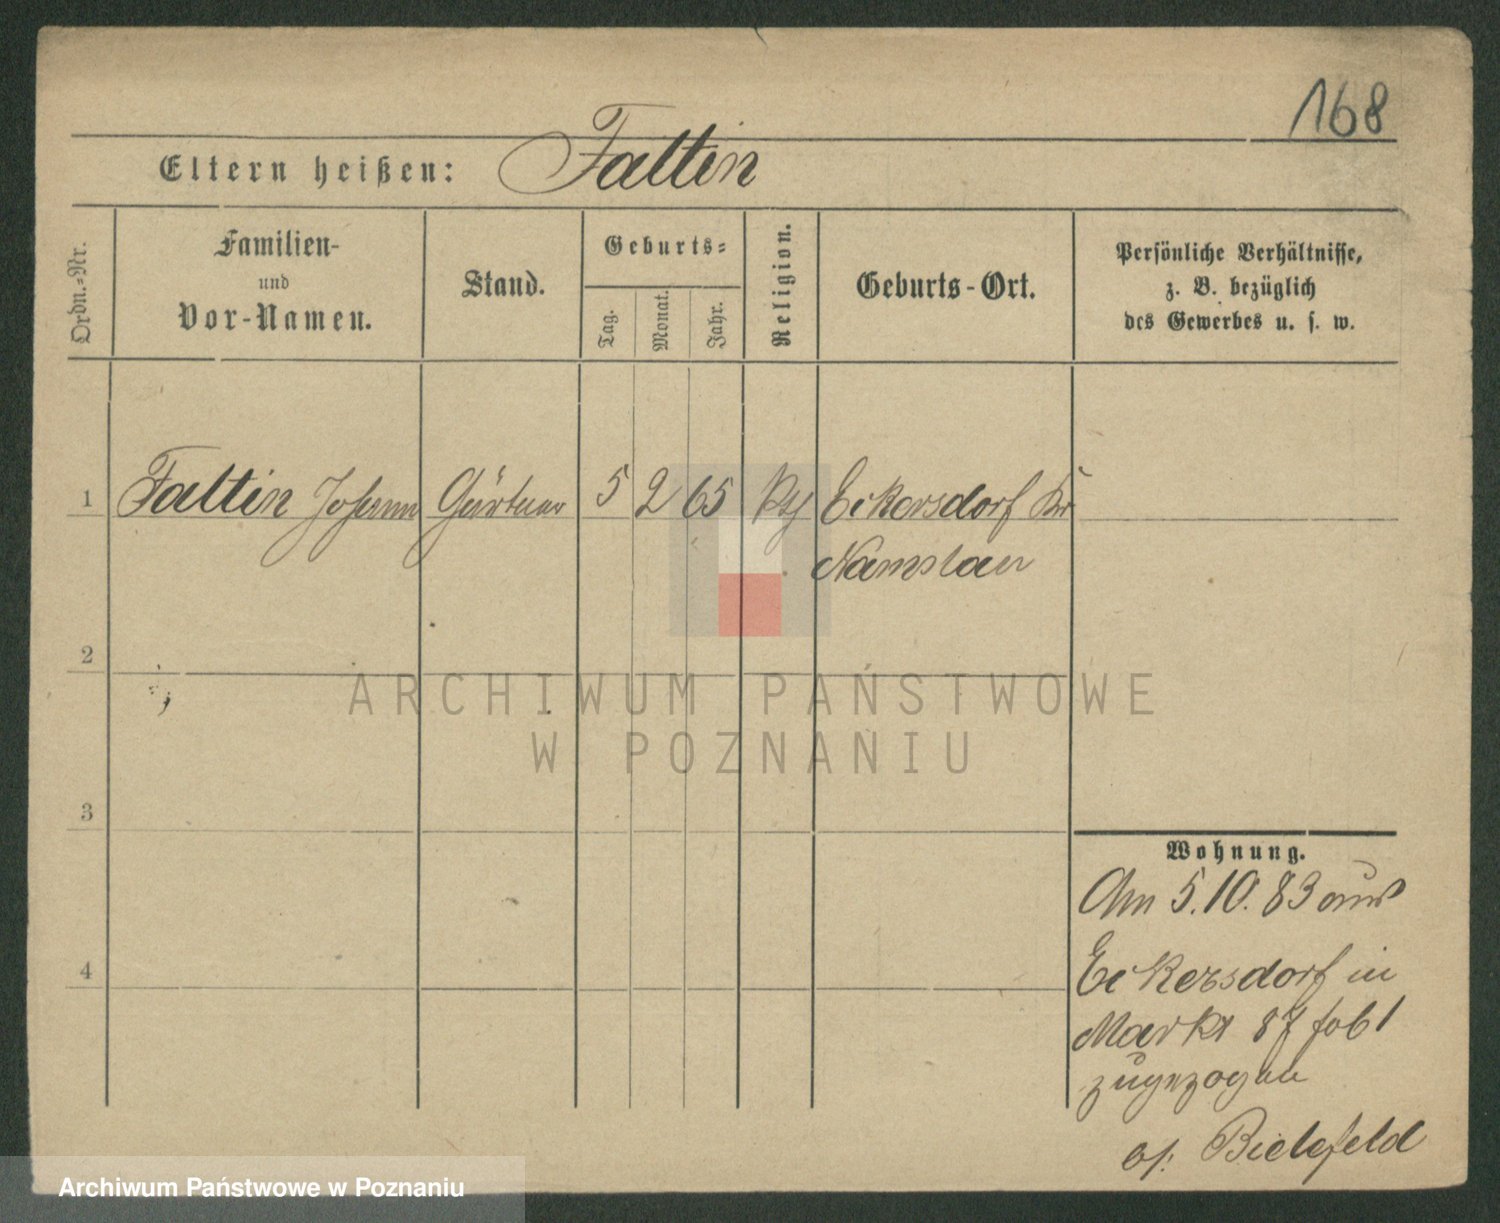 168
Eltern heißen: Faltin
Ordn.-Nr.
Familien-
und
Vor-Namen.
Stand.
Geburts-
Tag.
Monat.
Jahr.
Religion.
Geburts-Ort.
Persönliche Verhältnisse,
z. B. bezüglich
des Gewerbes u. s. w.
1 Faltin Johann Gärtner 5 2 65 kth Eckersdorf Kr
Namslau
2
3
4
ARCHIWUM PAŃSTWOWE
W POZNANIU
Wohnung.
Am 5.10.83 aus
Eckersdorf in
Markt 87
zugezogen
Bielefeld
Archiwum Państwowe w Poznaniu